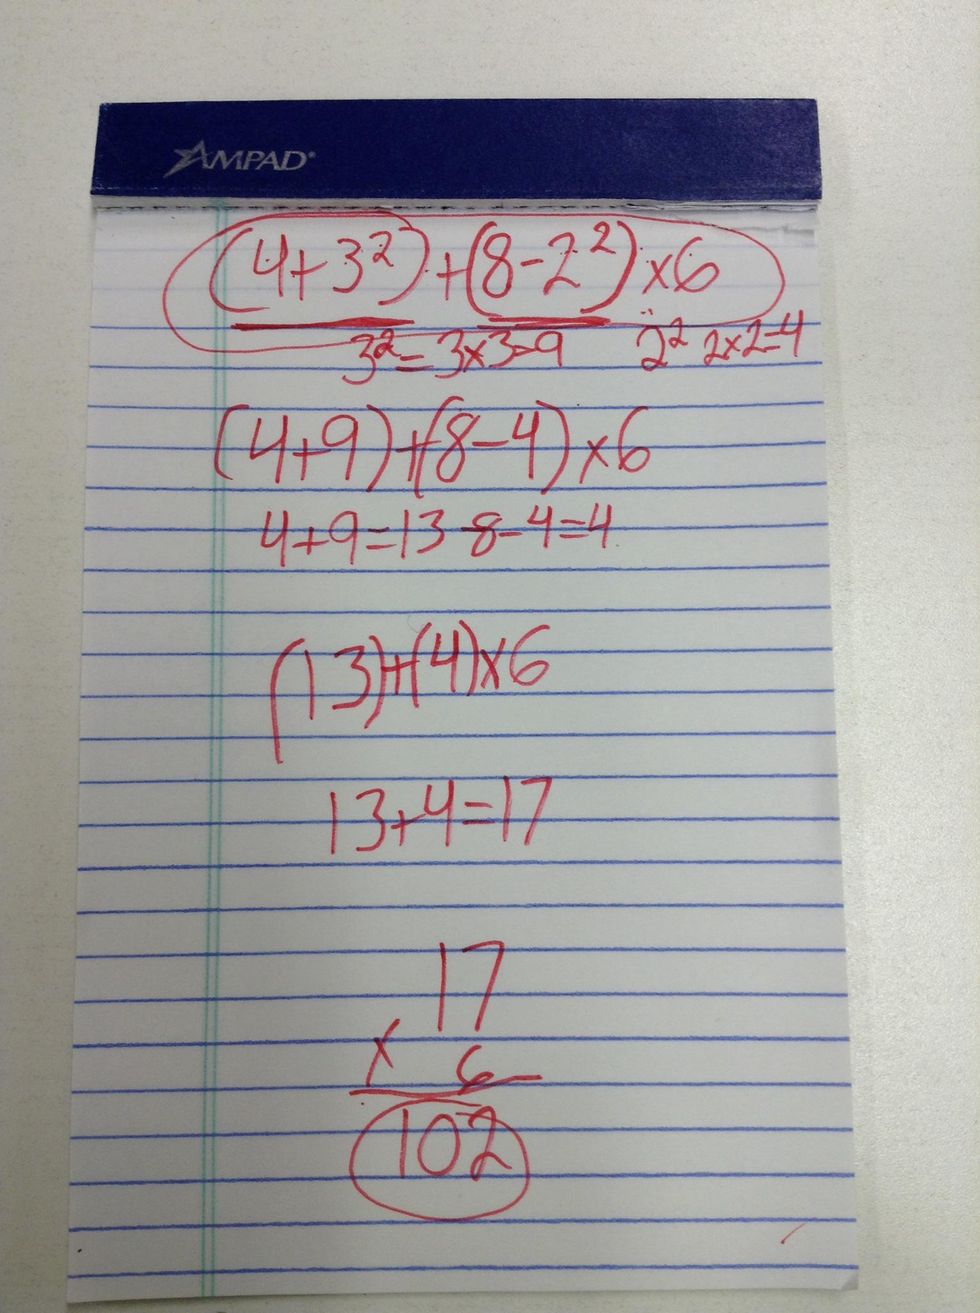 AMPAD
(4+3²)+(8-2²)×6
3²=3×3=9 2² 2×2=4
(4+9)+(8-4)×6
4+9=13 8-4=4
(13)+(4)×6
13+4=17
17
× 6
102